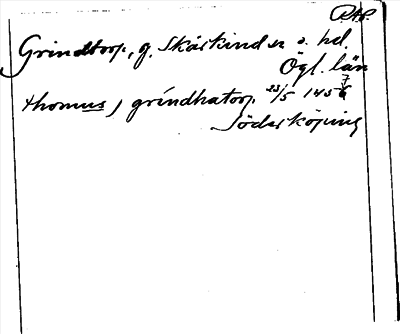 RAp.
Grindtorp, g. Skärkind sn o. hd.
Ögl. län
thomus j grindhatorp 23/5 1456
7
Söderköping